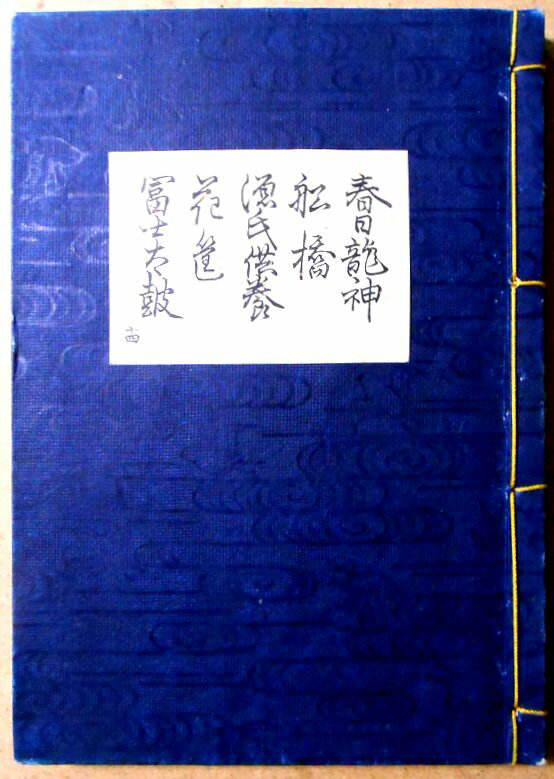 春日龍神
舩橋
源氏供養
花筐
冨士太鼓
十四